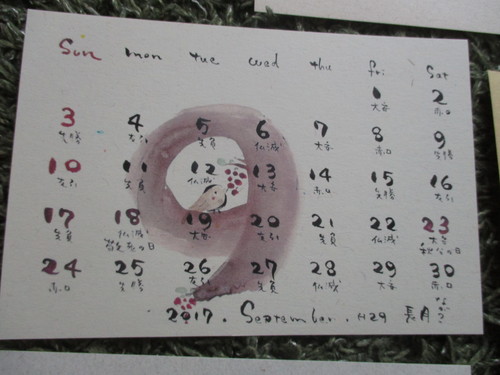 Sun mon tue wed thu fri Sat
1 2
大安 赤口
3 4 5 6 7 8 9
先勝 友引 先負 仏滅 大安 赤口 先勝
10 11 12 13 14 15 16
友引 先負 仏滅 大安 赤口 先勝 友引
17 18 19 20 21 22 23
先負 仏滅 大安 友引 先負 仏滅 大安
敬老の日 秋分の日
24 25 26 27 28 29 30
赤口 先勝 友引 先負 仏滅 大安 赤口
2017. September. H29 長月 ながつき
9